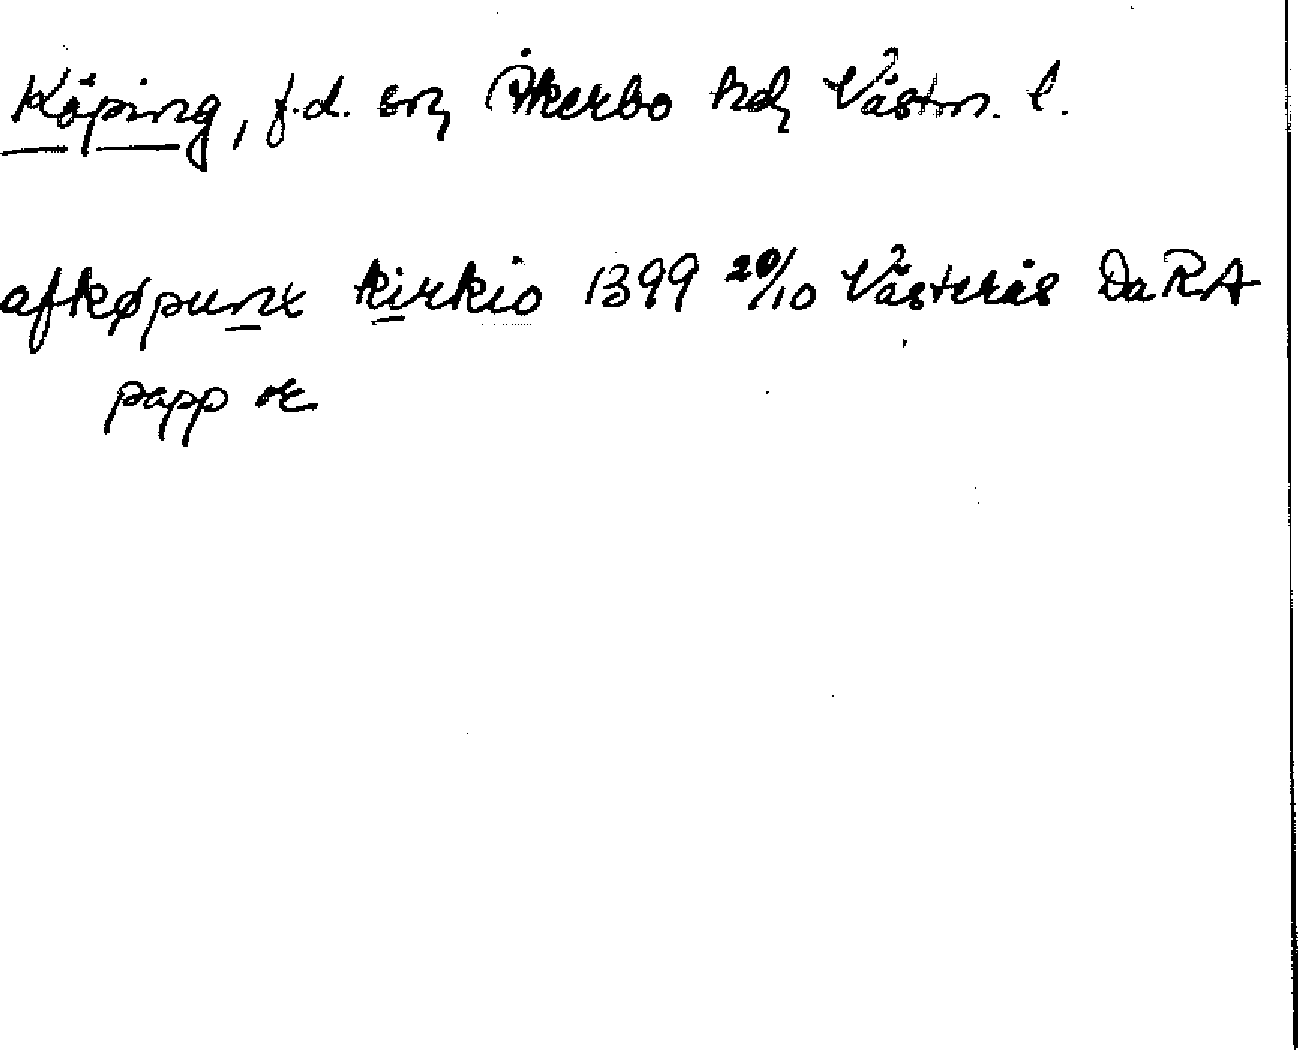 Köping, f.d. sn, Åkerbo hd, Västm. l.
af køpunx kirkio 1399 20/10 Västerås DaRA
papp or